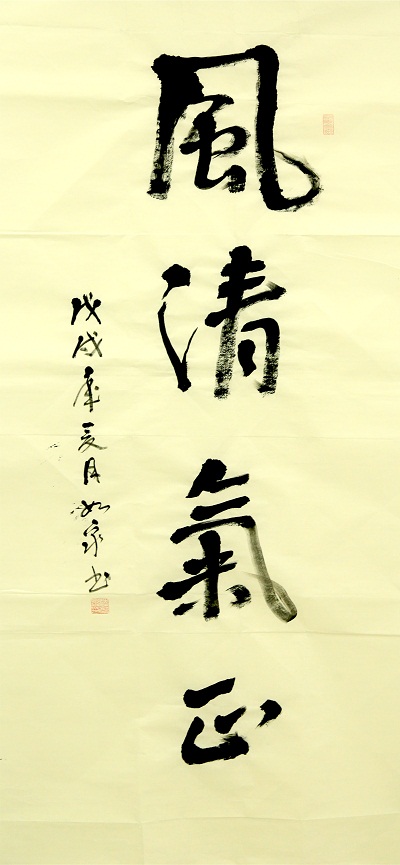 風清氣正
戊戌年夏月如泉书